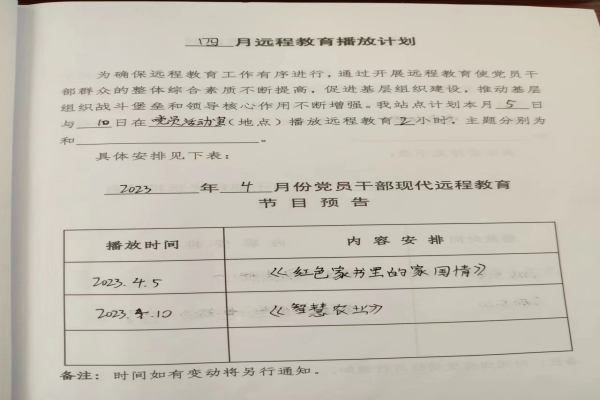 四 月远程教育播放计划
为确保远程教育工作有序进行，通过开展远程教育使党员干
部群众的整体综合素质不断提高，促进基层组织建设，推动基层
组织战斗堡垒和领导核心作用不断增强。我站点计划本月 5 日
与 10 日在党员活动室(地点)播放远程教育 2 小时，主题分别为
和 。
具体安排见下表：
2023 年 4 月份党员干部现代远程教育
节目预告
播放时间 内容安排
2023.4.5 《红色家书里的家国情》
2023.4.10 《智慧农业》
备注：时间如有变动将另行通知。